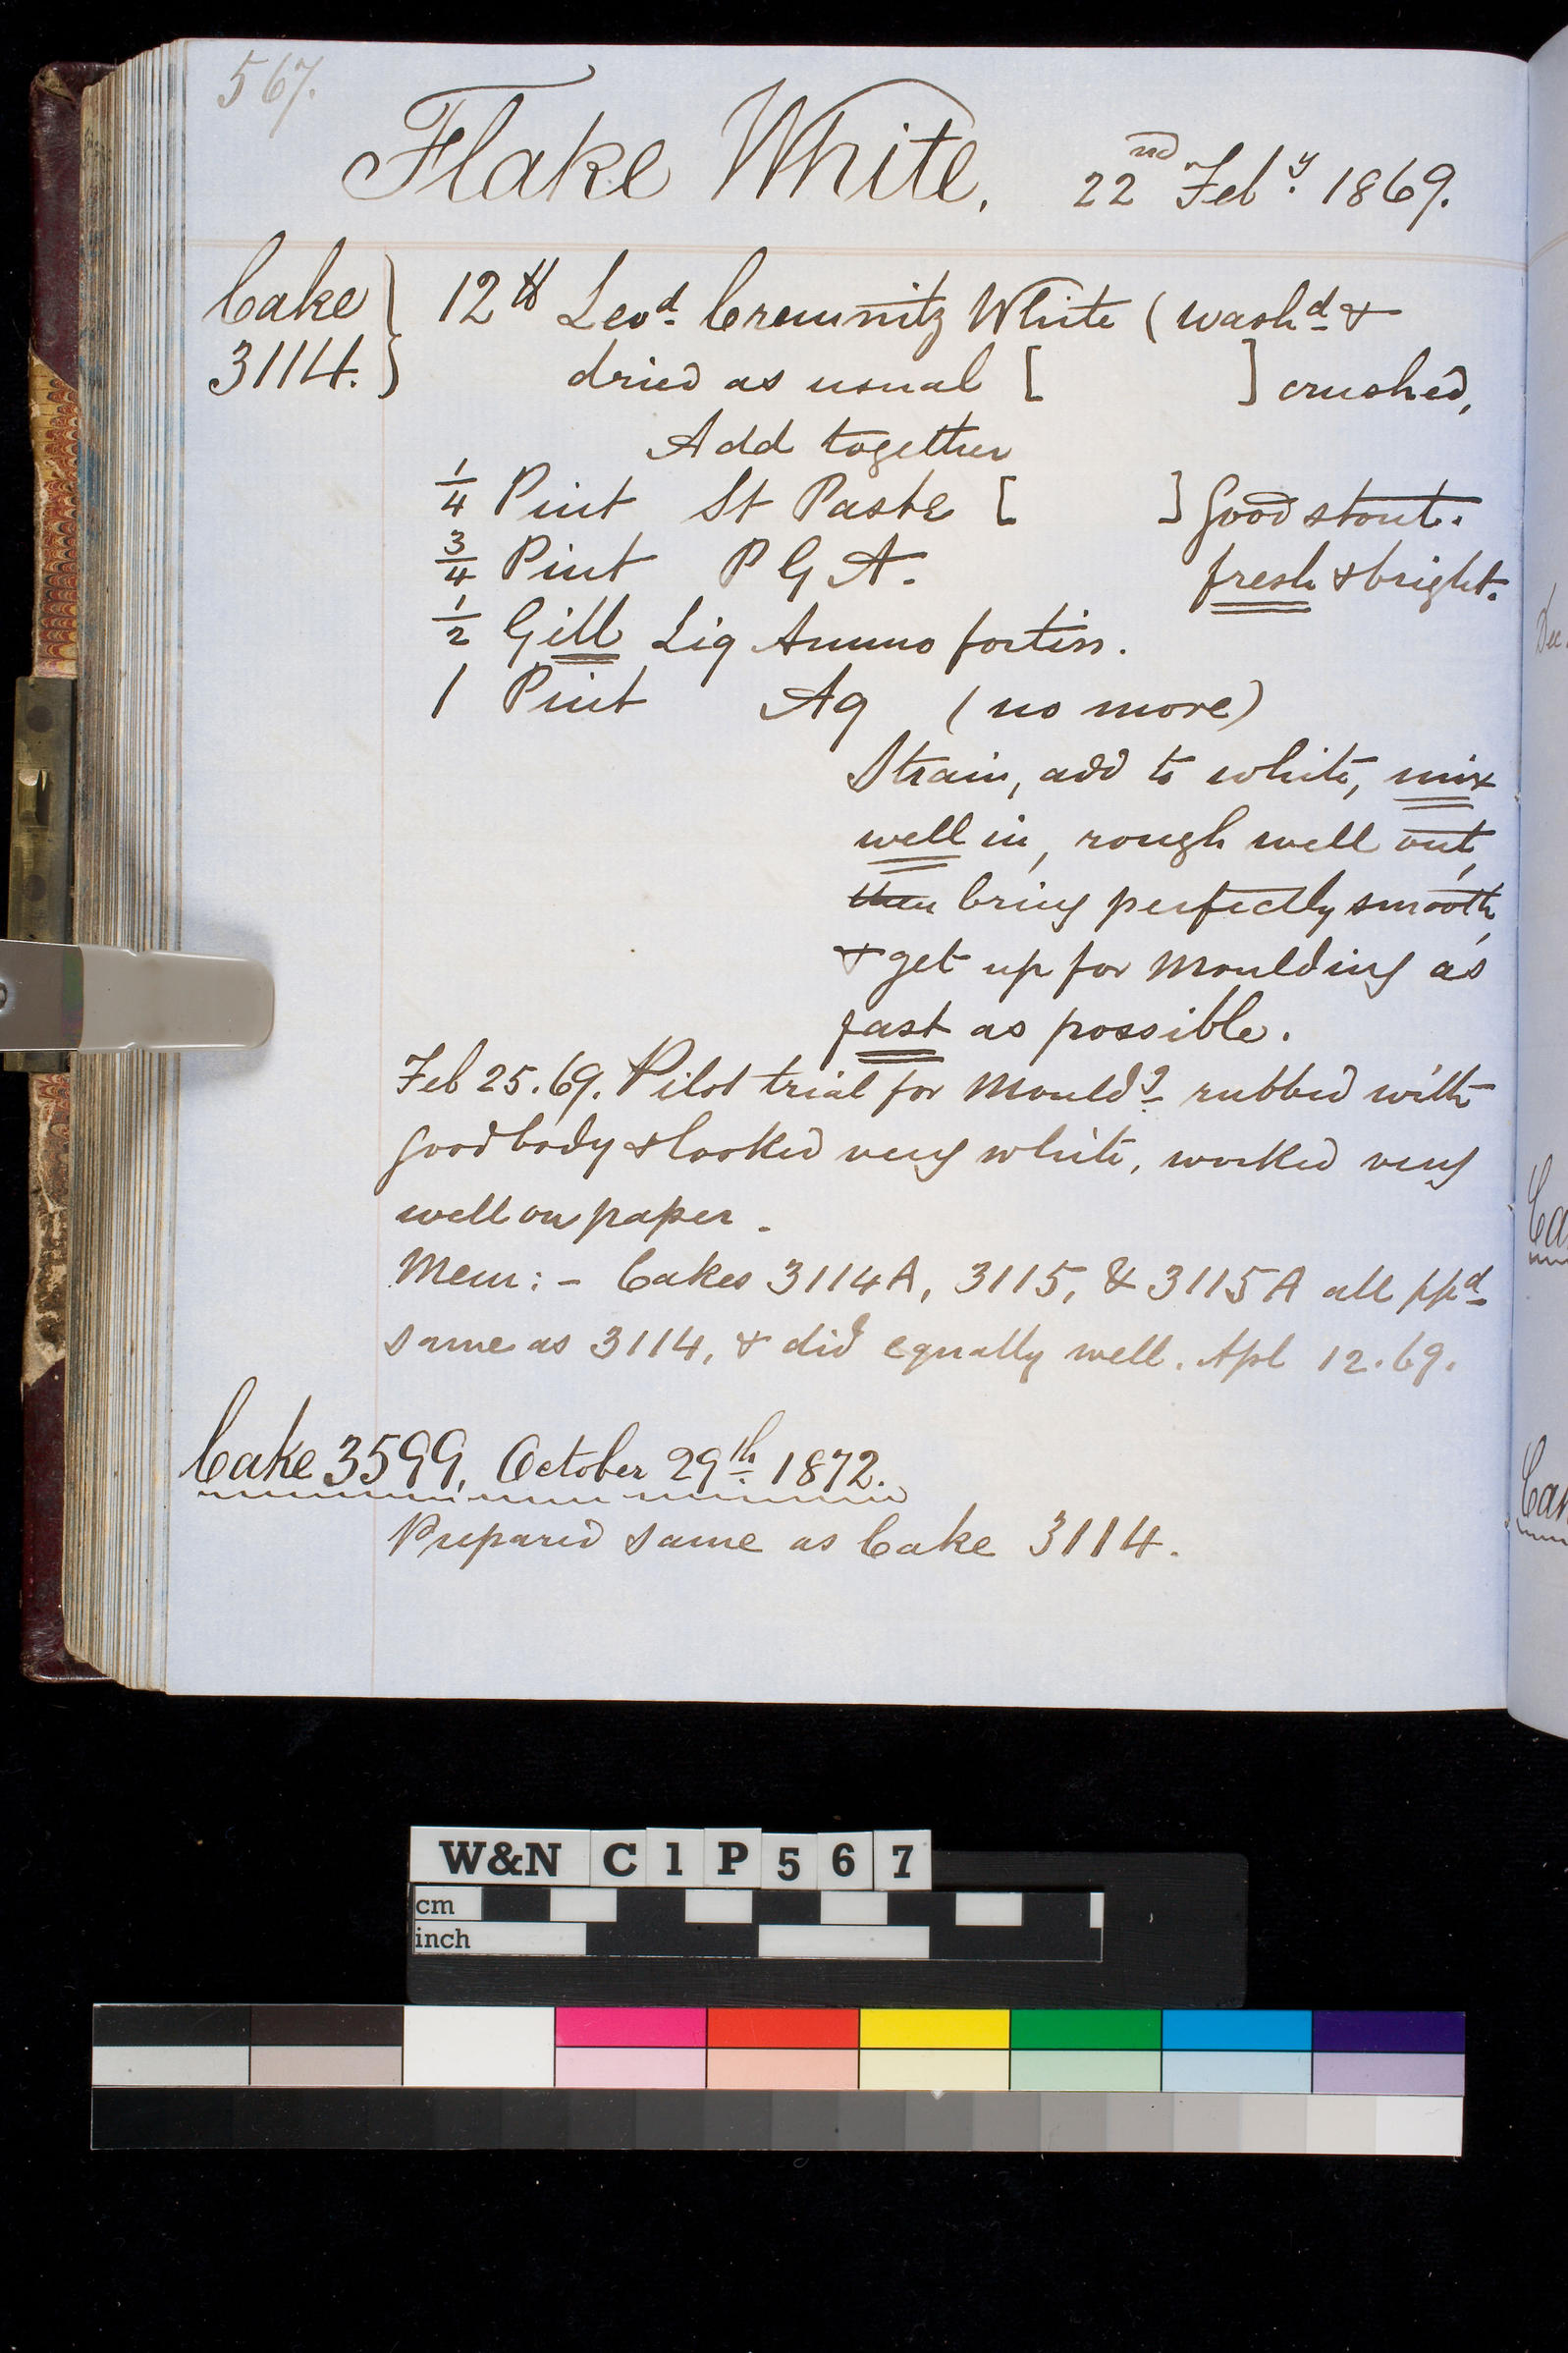 567.
Flake White. 22nd Feby. 1869.
Cake 3114.
12 lb Levd. Cremnitz White (washd. &
dried as usual [ ] crushed,
Add together
1/4 Pint St Paste [ ] Good stout.
3/4 Pint P G A. fresh & bright.
1/2 Gill Liq Ammo fortiss.
1 Pint Aq (no more)
Strain, add to white, mix
well in, rough well out,
then bring perfectly smooth,
& get up for Moulding as
fast as possible.
Feb 25.69. Pilot trial for Mouldg. rubbed with
good body & looked very white, worked very
well on paper.
Mem: - Cakes 3114A, 3115, & 3115A all ppd.
same as 3114, & did equally well. Apl 12.69.
Cake 3599, October 29th. 1872.
Prepared same as Cake 3114.
Dec
Ca
Cak
W&N C1P567
cm
inch